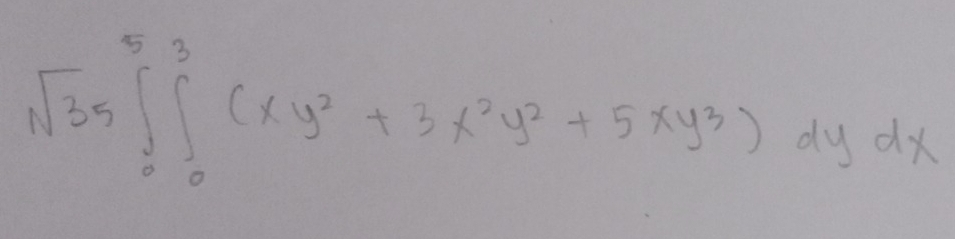 √35 ∫₀⁵ ∫₀³ (xy² + 3x²y² + 5xy³) dy dx